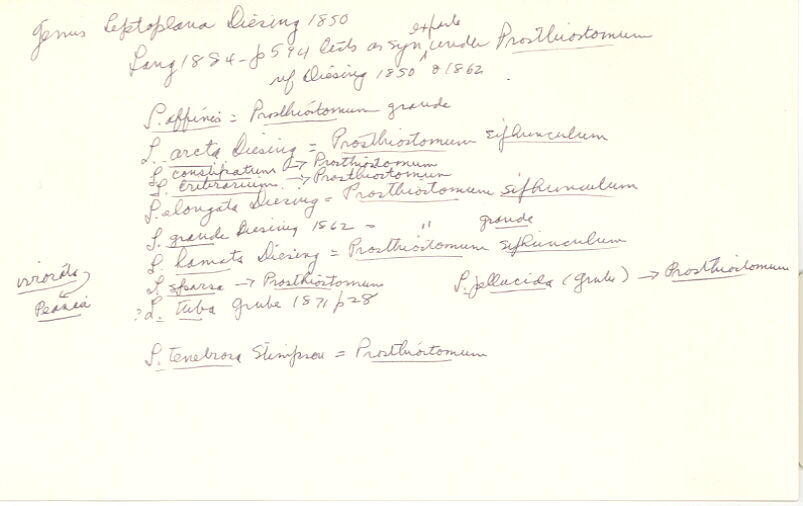 Genus Leptoplana Diesing 1850
Lang 1884 - p 594 lists as syn, ex parte under Prosthiostomum
ref Diesing 1850 & 1862
L. affinis = Prosthiostomum grande
L. arcta Diesing = Prosthiostomum siphunculum
L. constipatum -> Prosthiostomum
L. criterarium -> Prosthiostomum
L. elongata Diesing = Prosthiostomum siphunculum
L. grande Diesing 1862 = " grande
L. hamata Diesing = Prosthiostomum siphunculum
L. sparsa -> Prosthiostomum L. pellucida (Grube) -> Prosthiostomum
Peania
? L. tuba Grube 1871 p 28
L. tenebrosa Stimpson = Prosthiostomum